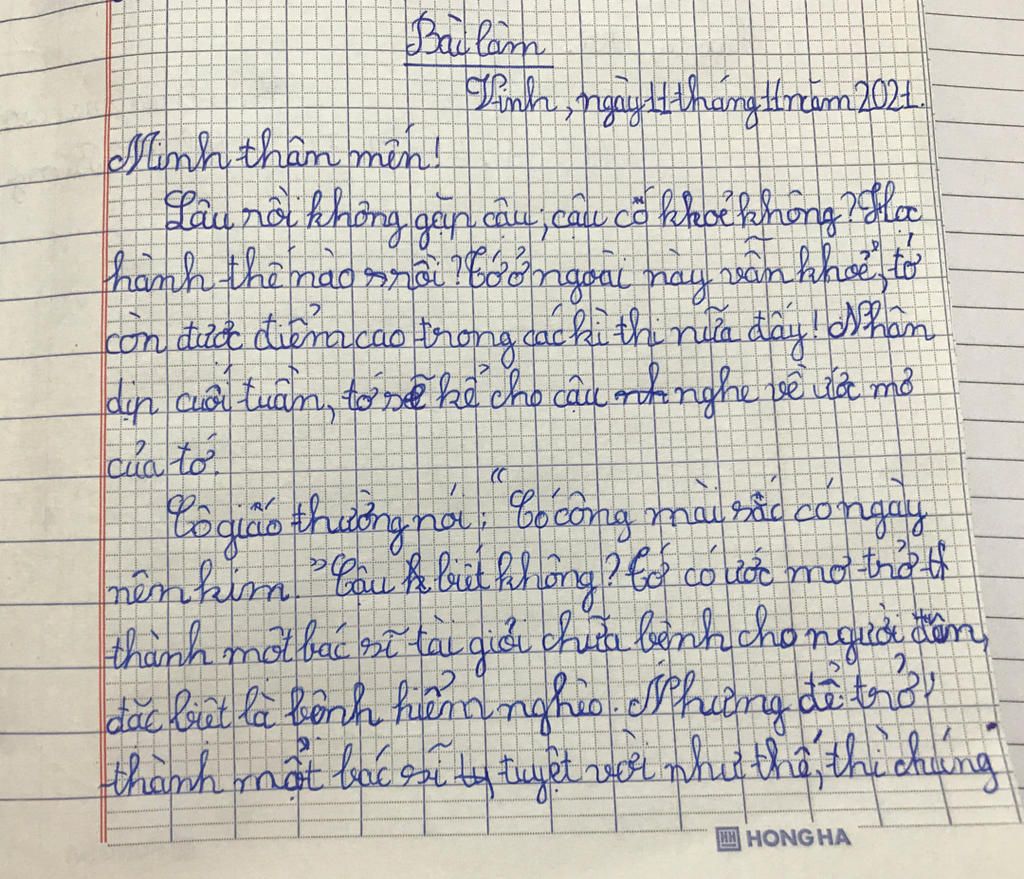 Bài làm
Vinh, ngày 11 tháng 11 năm 2021.
Minh thân mến!
Lâu rồi không gặp cậu, cậu có khoẻ không? Học
hành thế nào rồi? Tớ ở ngoài này vẫn khoẻ, tớ
còn được điểm cao trong các kì thi nữa đấy! Nhân
dịp cuối tuần, tớ sẽ kể cho cậu nghe về ước mơ
của tớ.
Cô giáo thường nói: "Có công mài sắc có ngày
nên kim." Cậu biết không? Tớ có ước mơ trở
thành một bác sĩ tài giỏi chữa bệnh cho người dân,
đặc biệt là bệnh hiểm nghèo. Nhưng để trở
thành một bác sĩ tuyệt vời như thế, thì chúng
HONG HA